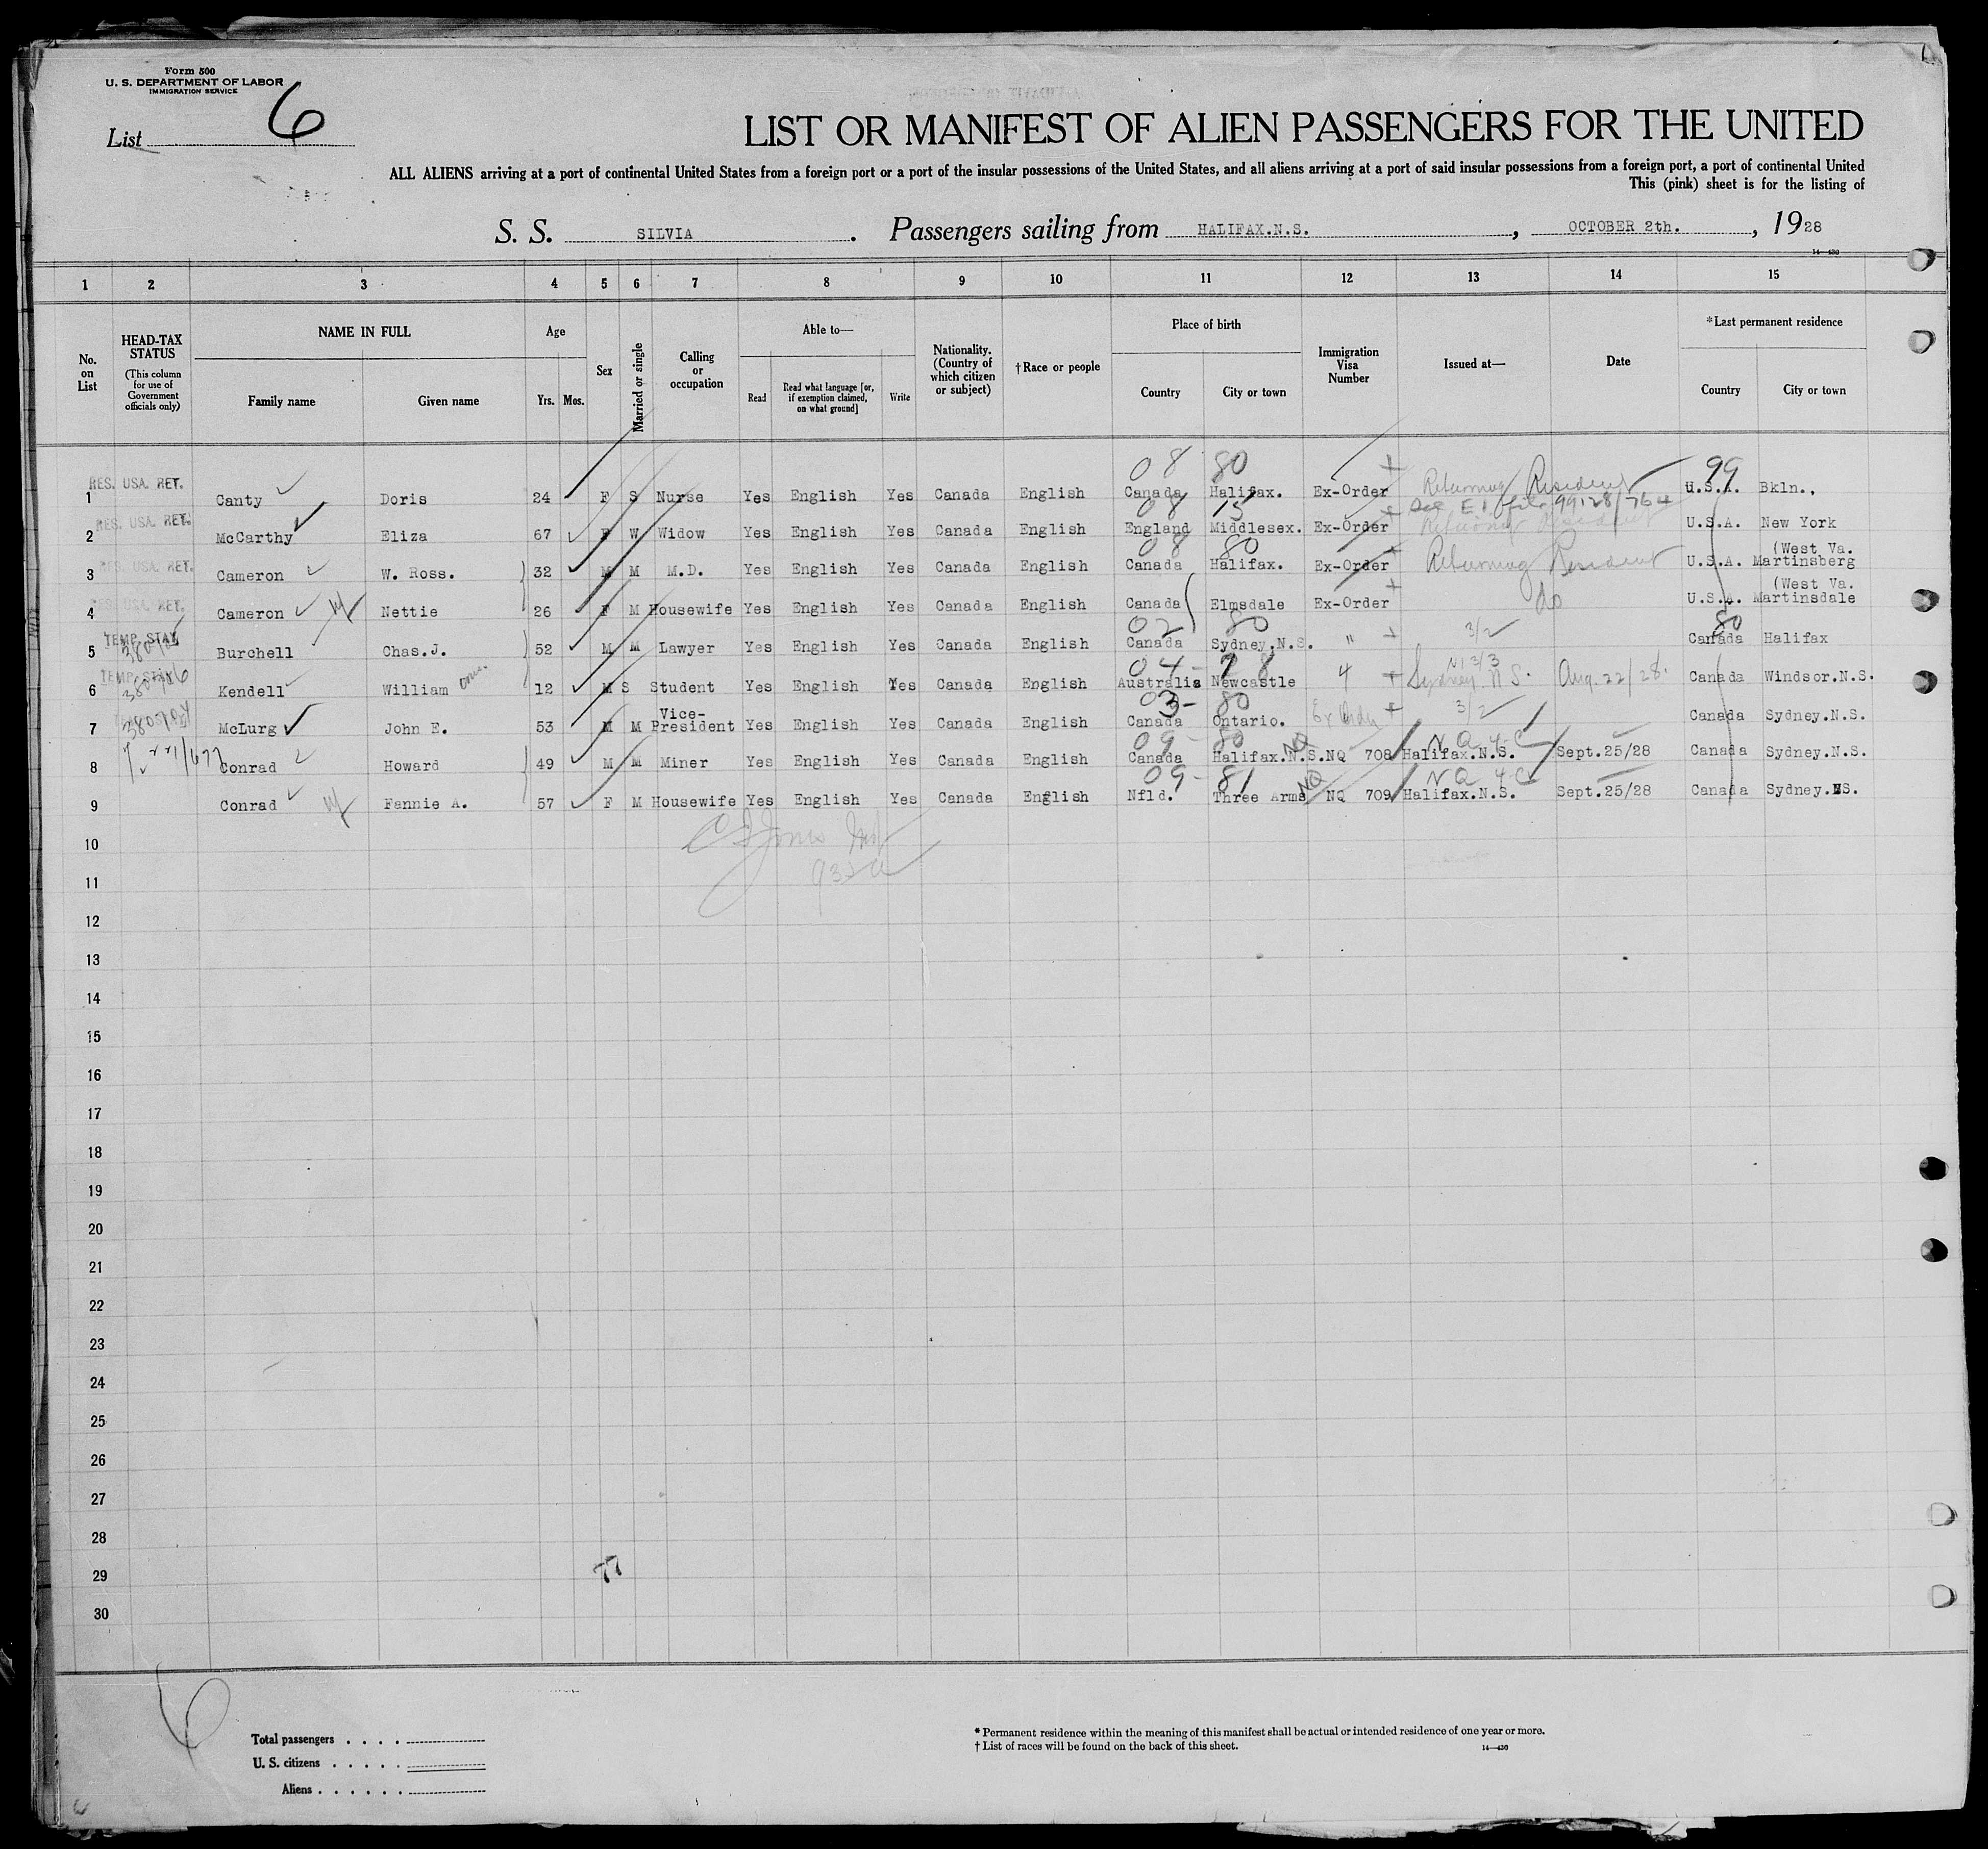 Form 500
U. S. DEPARTMENT OF LABOR
IMMIGRATION SERVICE
List 6
LIST OR MANIFEST OF ALIEN PASSENGERS FOR THE UNITED
ALL ALIENS arriving at a port of continental United States from a foreign port or a port of the insular possessions of the United States, and all aliens arriving at a port of said insular possessions from a foreign port, a port of continental United
This (pink) sheet is for the listing of
S. S. SILVIA. Passengers sailing from HALIFAX.N.S., OCTOBER 2th., 1928
14—430
1 2 3 4 5 6 7 8 9 10 11 12 13 14 15
No. on List
HEAD-TAX STATUS (This column for use of Government officials only)
NAME IN FULL Family name Given name
Age Yrs. Mos.
Sex
Married or single
Calling or occupation
Able to— Read Read what language [or, if exemption claimed, on what ground] Write
Nationality. (Country of which citizen or subject)
†Race or people
Place of birth Country City or town
Immigration Visa Number
Issued at—
Date
*Last permanent residence Country City or town
08 80 99
1 RES. USA. RET. Canty Doris 24 F S Nurse Yes English Yes Canada English Canada Halifax. Ex-Order Returning Resident U.S.A. Bkln.,
08 15 See E.I. file 99128/764
2 RES. USA. RET. McCarthy Eliza 67 F W Widow Yes English Yes Canada English England Middlesex. Ex-Order Returning Resident U.S.A. New York
08 80
3 RES. USA. RET. Cameron W. Ross. 32 M M M.D. Yes English Yes Canada English Canada Halifax. Ex-Order Returning Resident U.S.A. (West Va. Martinsberg
4 RES. USA. RET. Cameron Nettie 26 F M Housewife Yes English Yes Canada English Canada Elmsdale Ex-Order do U.S.A. (West Va. Martinsdale
02 80 80
5 TEMP. STAY Burchell Chas.J. 52 M M Lawyer Yes English Yes Canada English Canada Sydney.N.S. " 3/2 Canada Halifax
04- 78
6 TEMP. STAY Kendell William 12 M S Student Yes English Yes Canada English Australia Newcastle 4 3/3 Sydney N.S. Aug.22/28. Canada Windsor.N.S.
03- 80
7 McLurg John E. 53 M M Vice-President Yes English Yes Canada English Canada Ontario. Ex Order 3/2 Canada Sydney.N.S.
09- 80 NQ NQ 4-C
8 Conrad Howard 49 M M Miner Yes English Yes Canada English Canada Halifax.N.S. NQ 708 Halifax.N.S. Sept.25/28 Canada Sydney.N.S.
09- 81 NQ NQ 4-C
9 Conrad Fannie A. 57 F M Housewife Yes English Yes Canada English Nfld. Three Arms NQ 709 Halifax.N.S. Sept.25/28 Canada Sydney.NS.
10
11
12
13
14
15
16
17
18
19
20
21
22
23
24
25
26
27
28
29 77
30
6
Total passengers
U. S. citizens
Aliens
* Permanent residence within the meaning of this manifest shall be actual or intended residence of one year or more.
† List of races will be found on the back of this sheet.
14—430